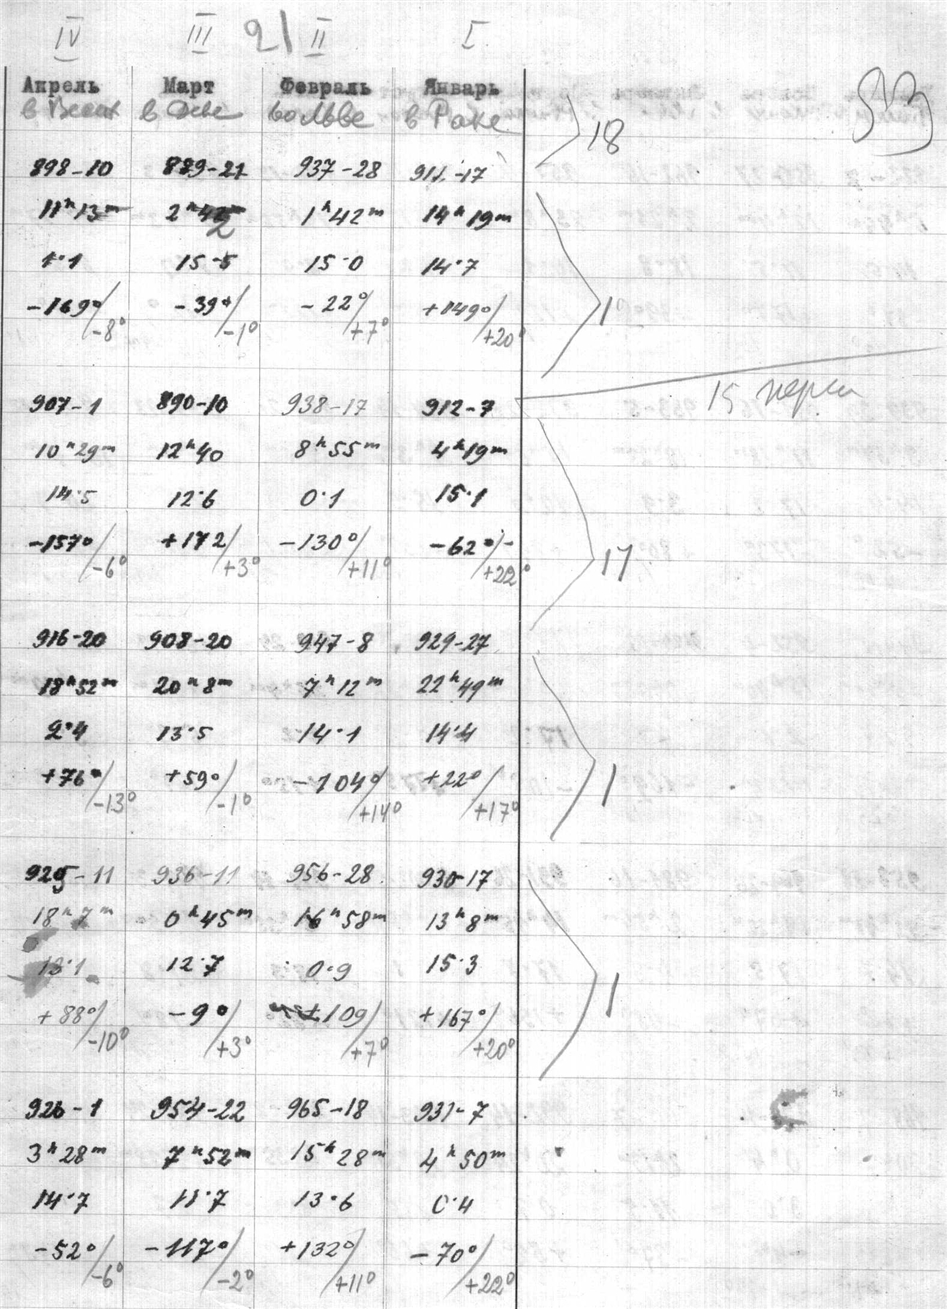 IV III 21 II I
Апрель Март Февраль Январь
в Весах в Деве во Льве в Раке
18
898-10 889-21 937-28 911-17
11ʰ13ᵐ 2ʰ42 1ʰ42ᵐ 14ʰ19ᵐ
1·1 15·5 15·0 14·7
-169°/-8° -39°/-1° -22°/+7° +149°/+20°
15 черн
907-1 890-10 938-17 912-7
10ʰ29ᵐ 12ʰ40 8ʰ55ᵐ 4ʰ19ᵐ
14·5 12·6 0·1 15·1
-157°/-6° +172/+3° -130°/+11° -62°/+22°
17
916-20 908-20 947-8 929-27
18ʰ52ᵐ 20ʰ8ᵐ 7ʰ12ᵐ 22ʰ49ᵐ
2·4 13·5 14·1 14·4
+76°/-13° +59°/-1° -104°/+14° +22°/+17°
1
925-11 936-11 956-28 930-17
18ʰ7ᵐ 0ʰ45ᵐ 16ʰ58ᵐ 13ʰ8ᵐ
13·1 12·7 0·9 15·3
+88°/-10° -9°/+3° +109/+7° +167°/+20°
1
926-1 954-22 965-18 931-7
3ʰ28ᵐ 7ʰ52ᵐ 15ʰ28ᵐ 4ʰ50ᵐ
14·7 11·7 13·6 0·4
-52°/-6° -117°/-2° +132°/+11° -70°/+22°